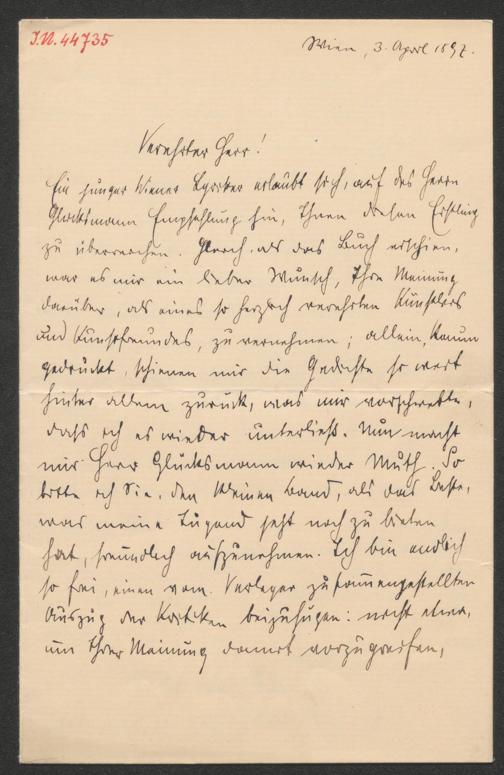 I.N. 44735
Wien, 3. April 1897.
Verehrter Herr!
Ein junger Wiener Lyriker erlaubt sich, auf des Herrn
Glücksmann Empfehlung hin, Ihnen diesen Erstling
zu überreichen. Gleich, als das Buch erschien,
war es mir ein lieber Wunsch, Ihre Meinung
darüber, als eines so herzlich verehrten Künstlers
und Kunstfreundes, zu vernehmen; allein, kaum
gedruckt, schienen mir die Gedichte so weit
hinter allem zurück, was mir vorschwebte,
dass ich es wieder unterließ. Nun macht
mir Herr Glücksmann wieder Muth. So
bitte ich Sie, den kleinen Band, als das Beste,
was meine Jugend jetzt noch zu bieten
hat, freundlich aufzunehmen. Ich bin endlich
so frei, einen vom Verleger zusammengestellten
Auszug der Kritiken beizufügen: nicht etwa,
um Ihrer Meinung damit vorzugreifen,